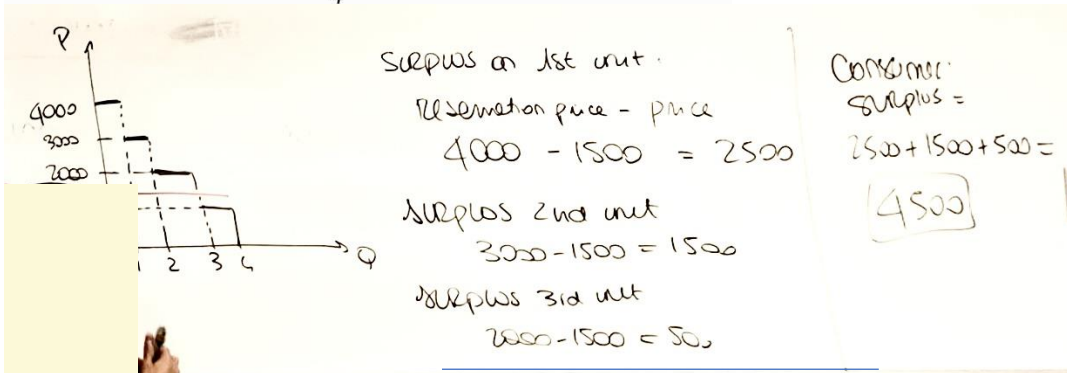 P
4000
3000
2000
1 2 3 4
Q
Surplus on 1st unit.
Reservation price - price
4000 - 1500 = 2500
Surplus 2nd unit
3000 - 1500 = 1500
Surplus 3rd unit
2000 - 1500 = 500
Consumer
surplus =
2500 + 1500 + 500 =
4500